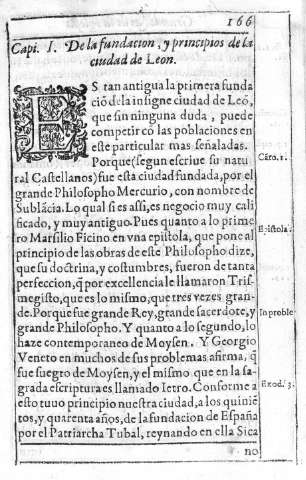 166
Capi. I. De la fundacion, y principios de la
ciudad de Leon.
ES tan antigua la primera funda
ciō de la insigne ciudad de Leō,
que sin ninguna duda, puede
competir cō las poblaciones en
este particular mas señaladas.
Porque (segun escriue su natu
ral Castellanos) fue esta ciudad fundada, por el
grande Philosopho Mercurio, con nombre de
Sublācia. Lo qual si es assi, es negocio muy cali
ficado, y muy antiguo. Pues quanto a lo prime
ro Marsilio Ficino en vna epistola, que pone al
principio de las obras de este Philosopho dize,
que su doctrina, y costumbres, fueron de tanta
perfeccion, q̄ por excellencia le llamaron Tris-
megisto, que es lo mismo, que tres vezes gran-
de. Porque fue grande Rey, grande sacerdote, y
grande Philosopho. Y quanto a lo segundo, lo
haze contemporaneo de Moysen. Y Georgio
Veneto en muchos de sus problemas afirma, q̄
fue suegro de Moysen, y el mismo que en la sa-
grada escriptura es llamado Ietro. Conforme a
esto tuuo principio nuestra ciudad, a los quiniē
tos, y quarenta años, de la fundacion de España
por el Patriarcha Tubal, reynando en ella Sica
no
Cāto. 1.
Epistola.
In proble.
Exod. 3.